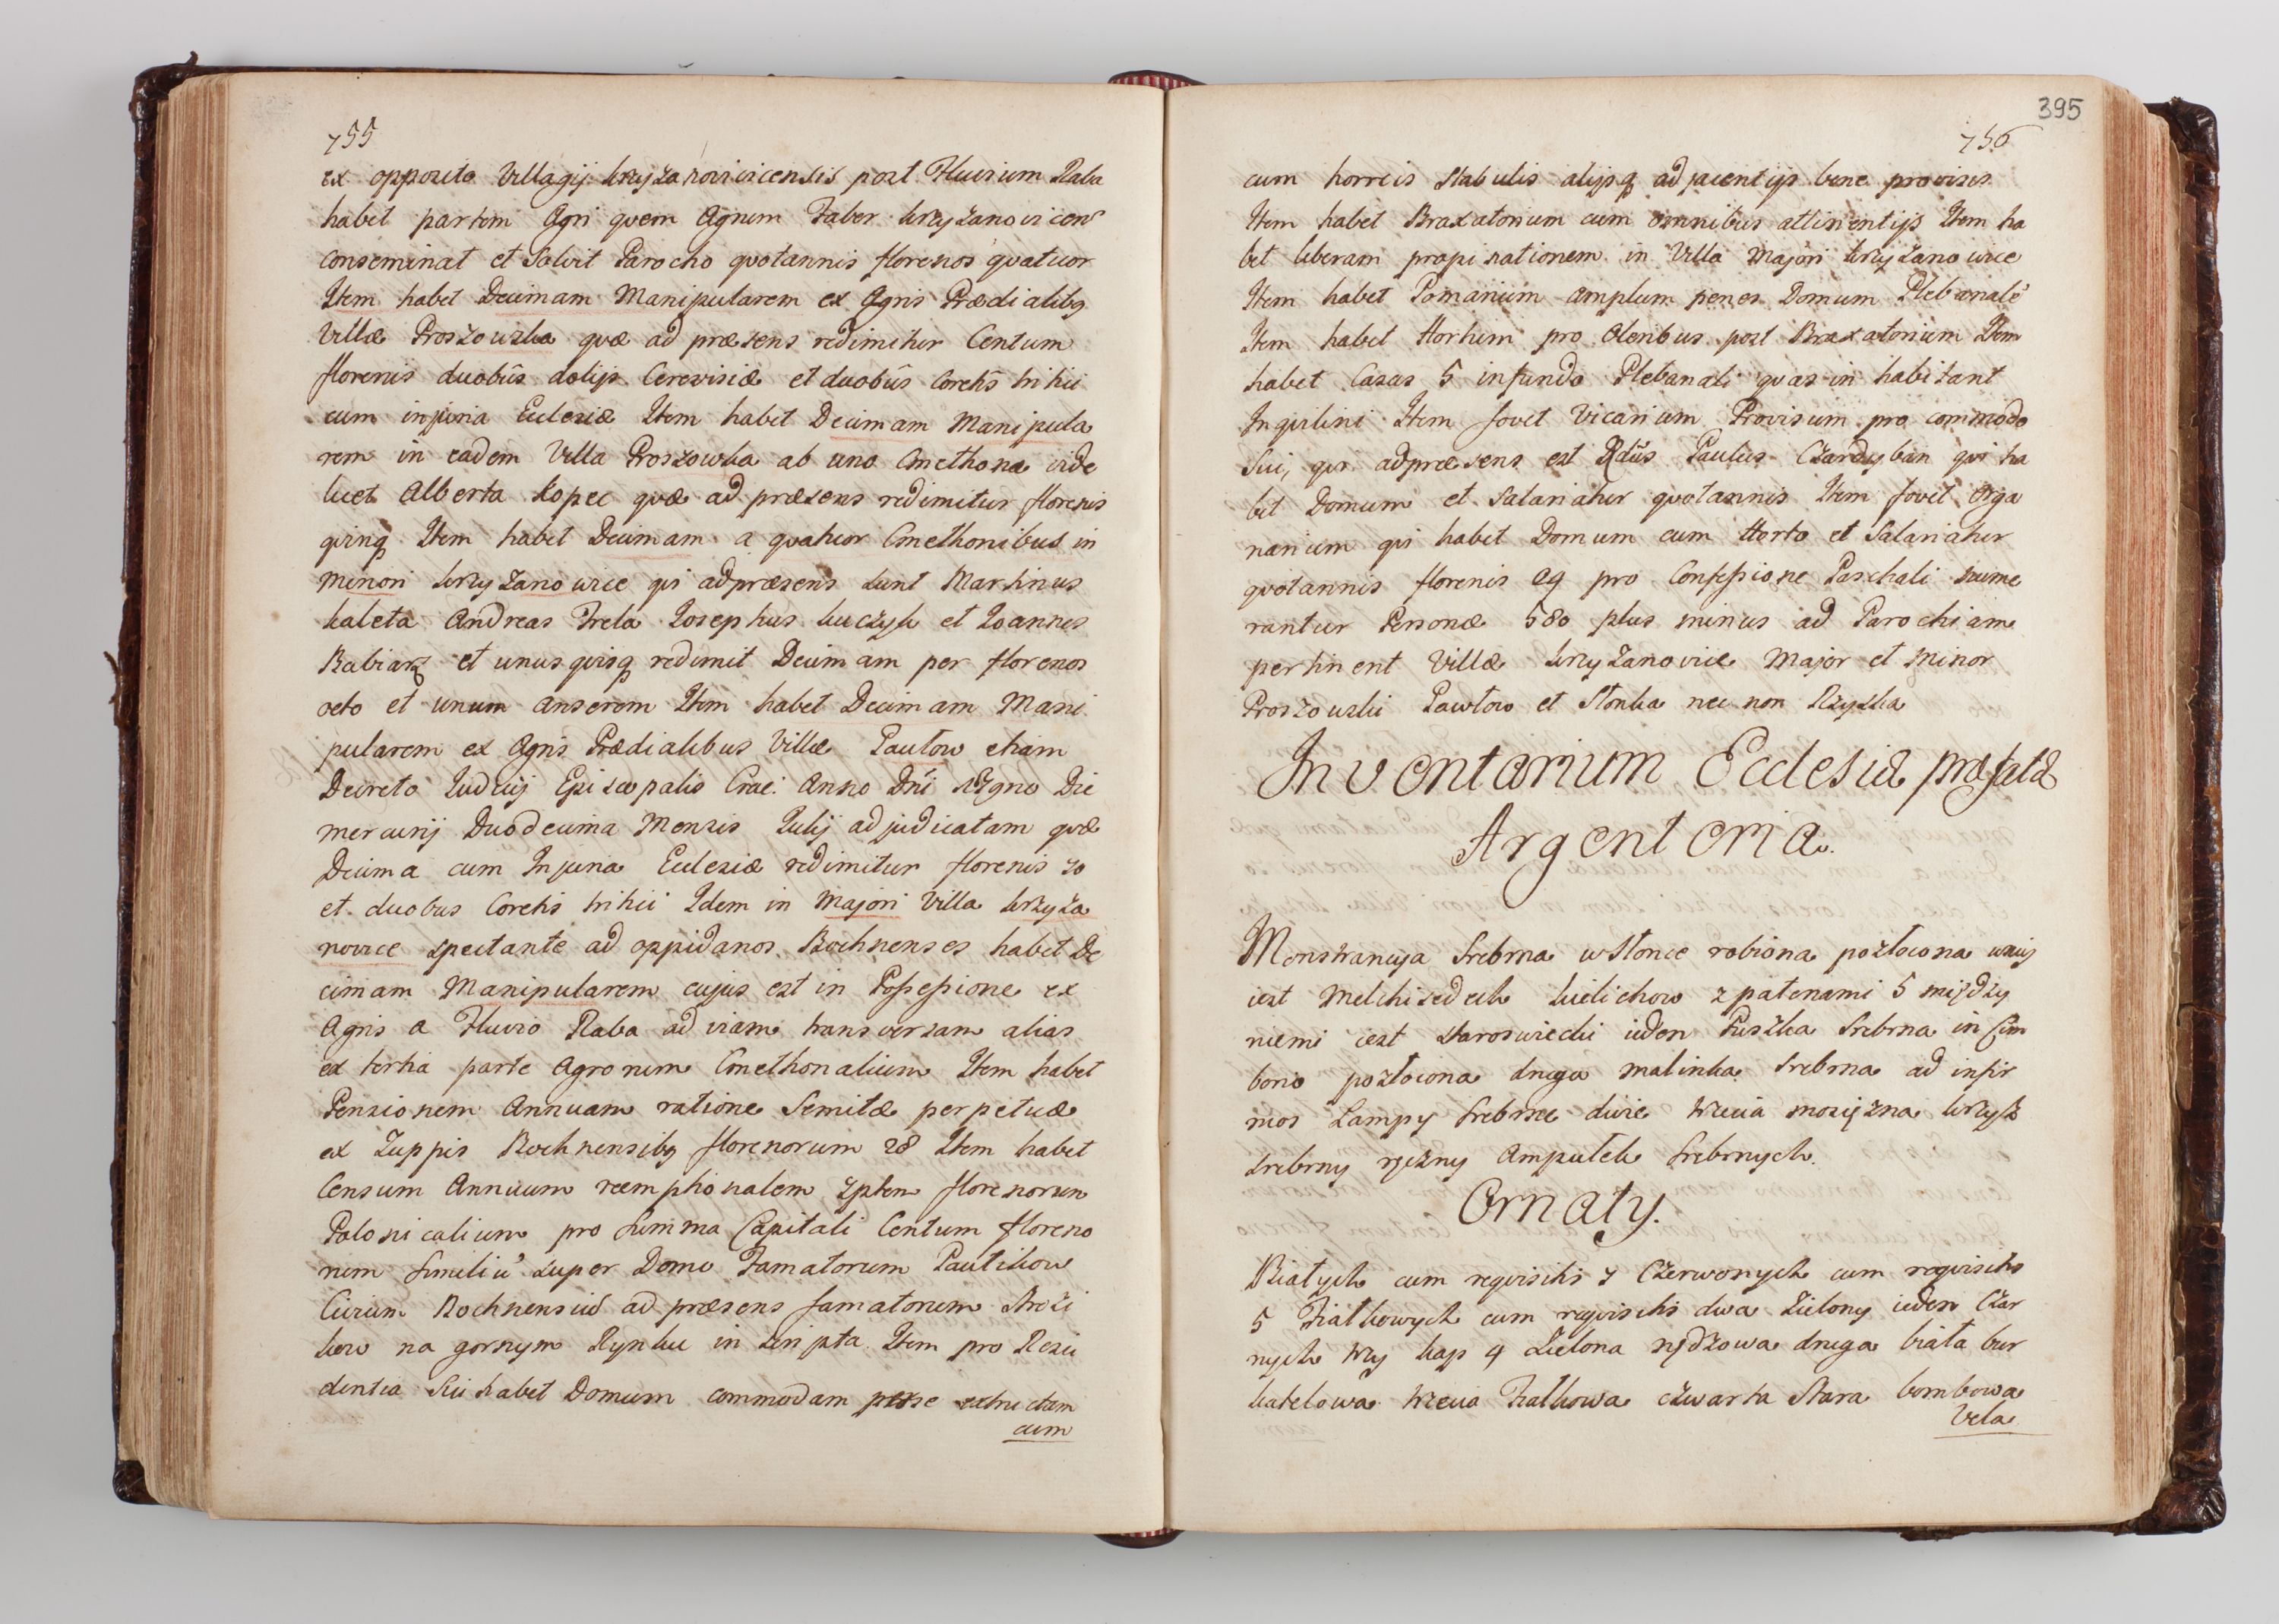 755
ex opposito Villagij krzyżanovicensis post Fluvium Raba
habet partem Agri quem Agrum Faber krzyżanovicen
conseminat et Solvit Parocho quotannis florenos quatuor
Item habet Decimam Manipularem ex Agris Prædialibq
Villæ Proszowka quæ ad præsens redimitur Centum
florenis duobus dolijs Cerevisiæ et duobus Coretis tritici
cum injuria Ecclesiæ Item habet Decimam Manipula
rem in eadem Villa Proszowka ab uno Cmethone vide
licet Alberto kopec quæ ad præsens redimitur florenis
qvinq Item habet Decimam a quatuor Cmethonibus in
minori krzyżanowice qvi ad præsens sunt Martinus
kaleta Andreas Frela Josephus kuczyk et Joannes
Babiarz et unus qvisq redimit Decimam per florenos
octo et unum anserem Item habet Decimam Mani
pularem ex Agris Prædialibus Villæ Pawłow etiam
Decreto Judicij Episcopalis Crac: Anno Dni Die
mercurij Duodecima Mensis Julij adjudicatam quæ
Decima cum Injuria Ecclesiæ redimitur florenis 30
et duobus Coretis tritici Idem in Majori Villa krzyża
novice spectante ad oppidanos Bochnenses habet De
cimam Manipularem cujus est in Possessione ex
Agris a Fluvio Raba ad viam transversam alias
ex tertia parte Agrorum Cmethonalium Item habet
Pensionem Annuam ratione Semitæ perpetuæ
ex Zuppis Bochnensibq florenorum 28 Item habet
Censum Annuum reemptionalem Septem florenorum
Polonicalium pro Summa Capitali Centum floreno
rum Similiu super Domo Famatorum Pautikow
Civium Bochnensiu ad præsens famatorum Strozi
kow na gornym Rynku in scripta Item pro Resi
dentia Sui habet Domum commodam extructam
cum
395
756
cum horreis stabulis alijsq adjacentijs bene provises
Item habet Braxatorium cum omnibus attinentijs Item ha
bet liberam propinationem in Villa Majori krzyżanowice
Item habet Pomarium amplum penes Domum Plebanale
Item habet Hortum pro Oleribus post Braxatorium Item
habet Casas 5 in fundo Plebanali quas in habitant
Inquilini Item fovet Vicarium Provisum pro commodo
Sui, qvi ad præsens est Rdus Paulus Czardyban qvi ha
bet Domum et Salariatur quotannis Item fovet Orga
narium qvi habet Domum cum Horto et Salariatur
quotannis florenis 29 pro Confessione Paschali nume
rantur Personæ 580 plus minus ad Parochiam
pertinent Villæ krzyżanovice Major et Minor
Proszowki Pawłow et Słonka nec non Rzyzka
Inventarium Ecclesiæ præfatæ
Argenteria.
Monstrancyja Srebrna w Słonce robiona pozłocona w niej
iest Melchisedech kielichow z patenami 5 między
niemi iest staroswiecki ieden Puszka Srebrna in Cim
borio pozłocona druga malinka Srebrna ad infir
mos Lampy Srebrne dwie trzecia mosiężna krzyż
srebrny ręczny Ampułek Srebrnych.
Ornaty.
Białych cum reqvisitis 7 Czerwonych cum reqvisitis
5 Fiałkowych cum reqvisitis dwa Zielony ieden Czar
nych trzy kap 4 Zielona rzędzowa druga biała bur
katelowa trzecia Fiałkowa czwarta Stara bombowa
Vela